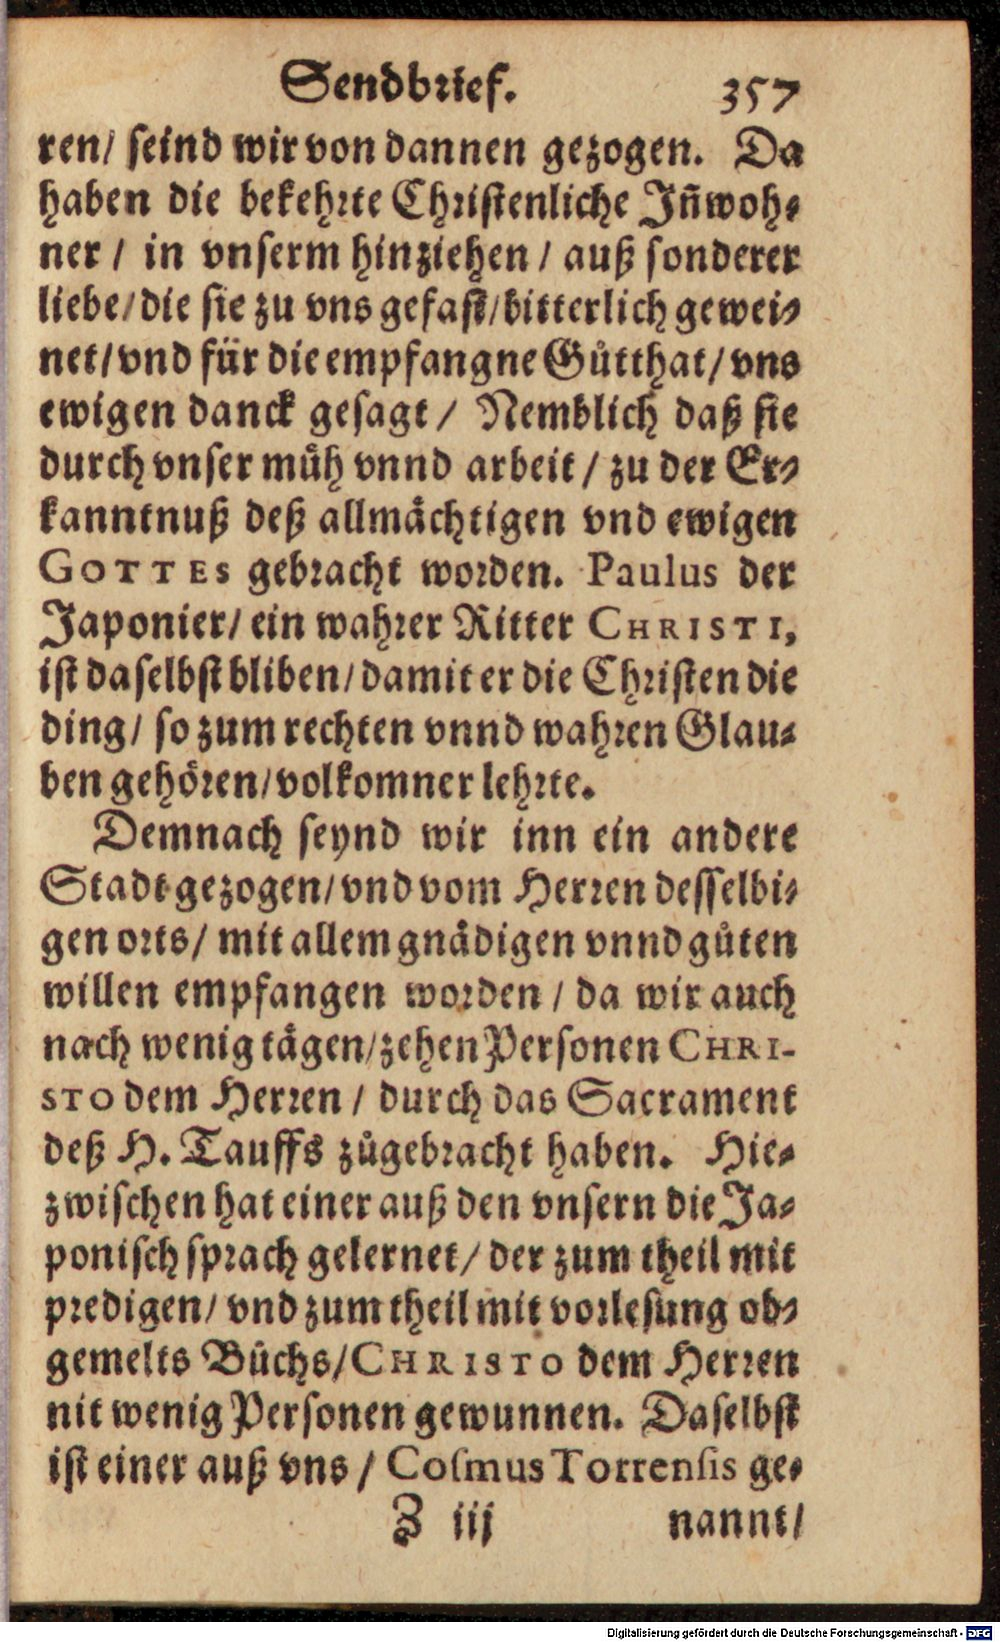 Sendbrief. 357
ren/ seind wir von dannen gezogen. Da
haben die bekehrte Christenliche Iñwoh⸗
ner / in vnserm hinziehen / auß sonderer
liebe/die sie zu vns gefast/bitterlich gewei⸗
net/vnd für die empfangne Gůtthat/ vns
ewigen danck gesagt / Nemblich daß sie
durch vnser můh vnnd arbeit / zu der Er⸗
kanntnuß deß allmåchtigen vnd ewigen
GOTTES gebracht worden. Paulus der
Japonier/ ein wahrer Ritter CHRISTI,
ist daselbst bliben/damit er die Christen die
ding/ so zum rechten vnnd wahren Glau⸗
ben gehören/volkomner lehrte.
Demnach seynd wir inn ein andere
Stadt gezogen/vnd vom Herren desselbi⸗
gen orts/ mit allem gnådigen vnnd gůten
willen empfangen worden / da wir auch
nach wenig tågen/zehen Personen CHRI-
STO dem Herren / durch das Sacrament
deß H. Tauffs zůgebracht haben. Hie⸗
zwischen hat einer auß den vnsern die Ja⸗
ponisch sprach gelernet/ der zum theil mit
predigen/ vnd zum theil mit vorlesung ob⸗
gemelts Bůchs/CHRISTO dem Herren
nit wenig Personen gewunnen. Daselbst
ist einer auß vns / Cosmus Torrensis ge⸗
Z iij nannt/
Digitalisierung gefördert durch die Deutsche Forschungsgemeinschaft - DFG